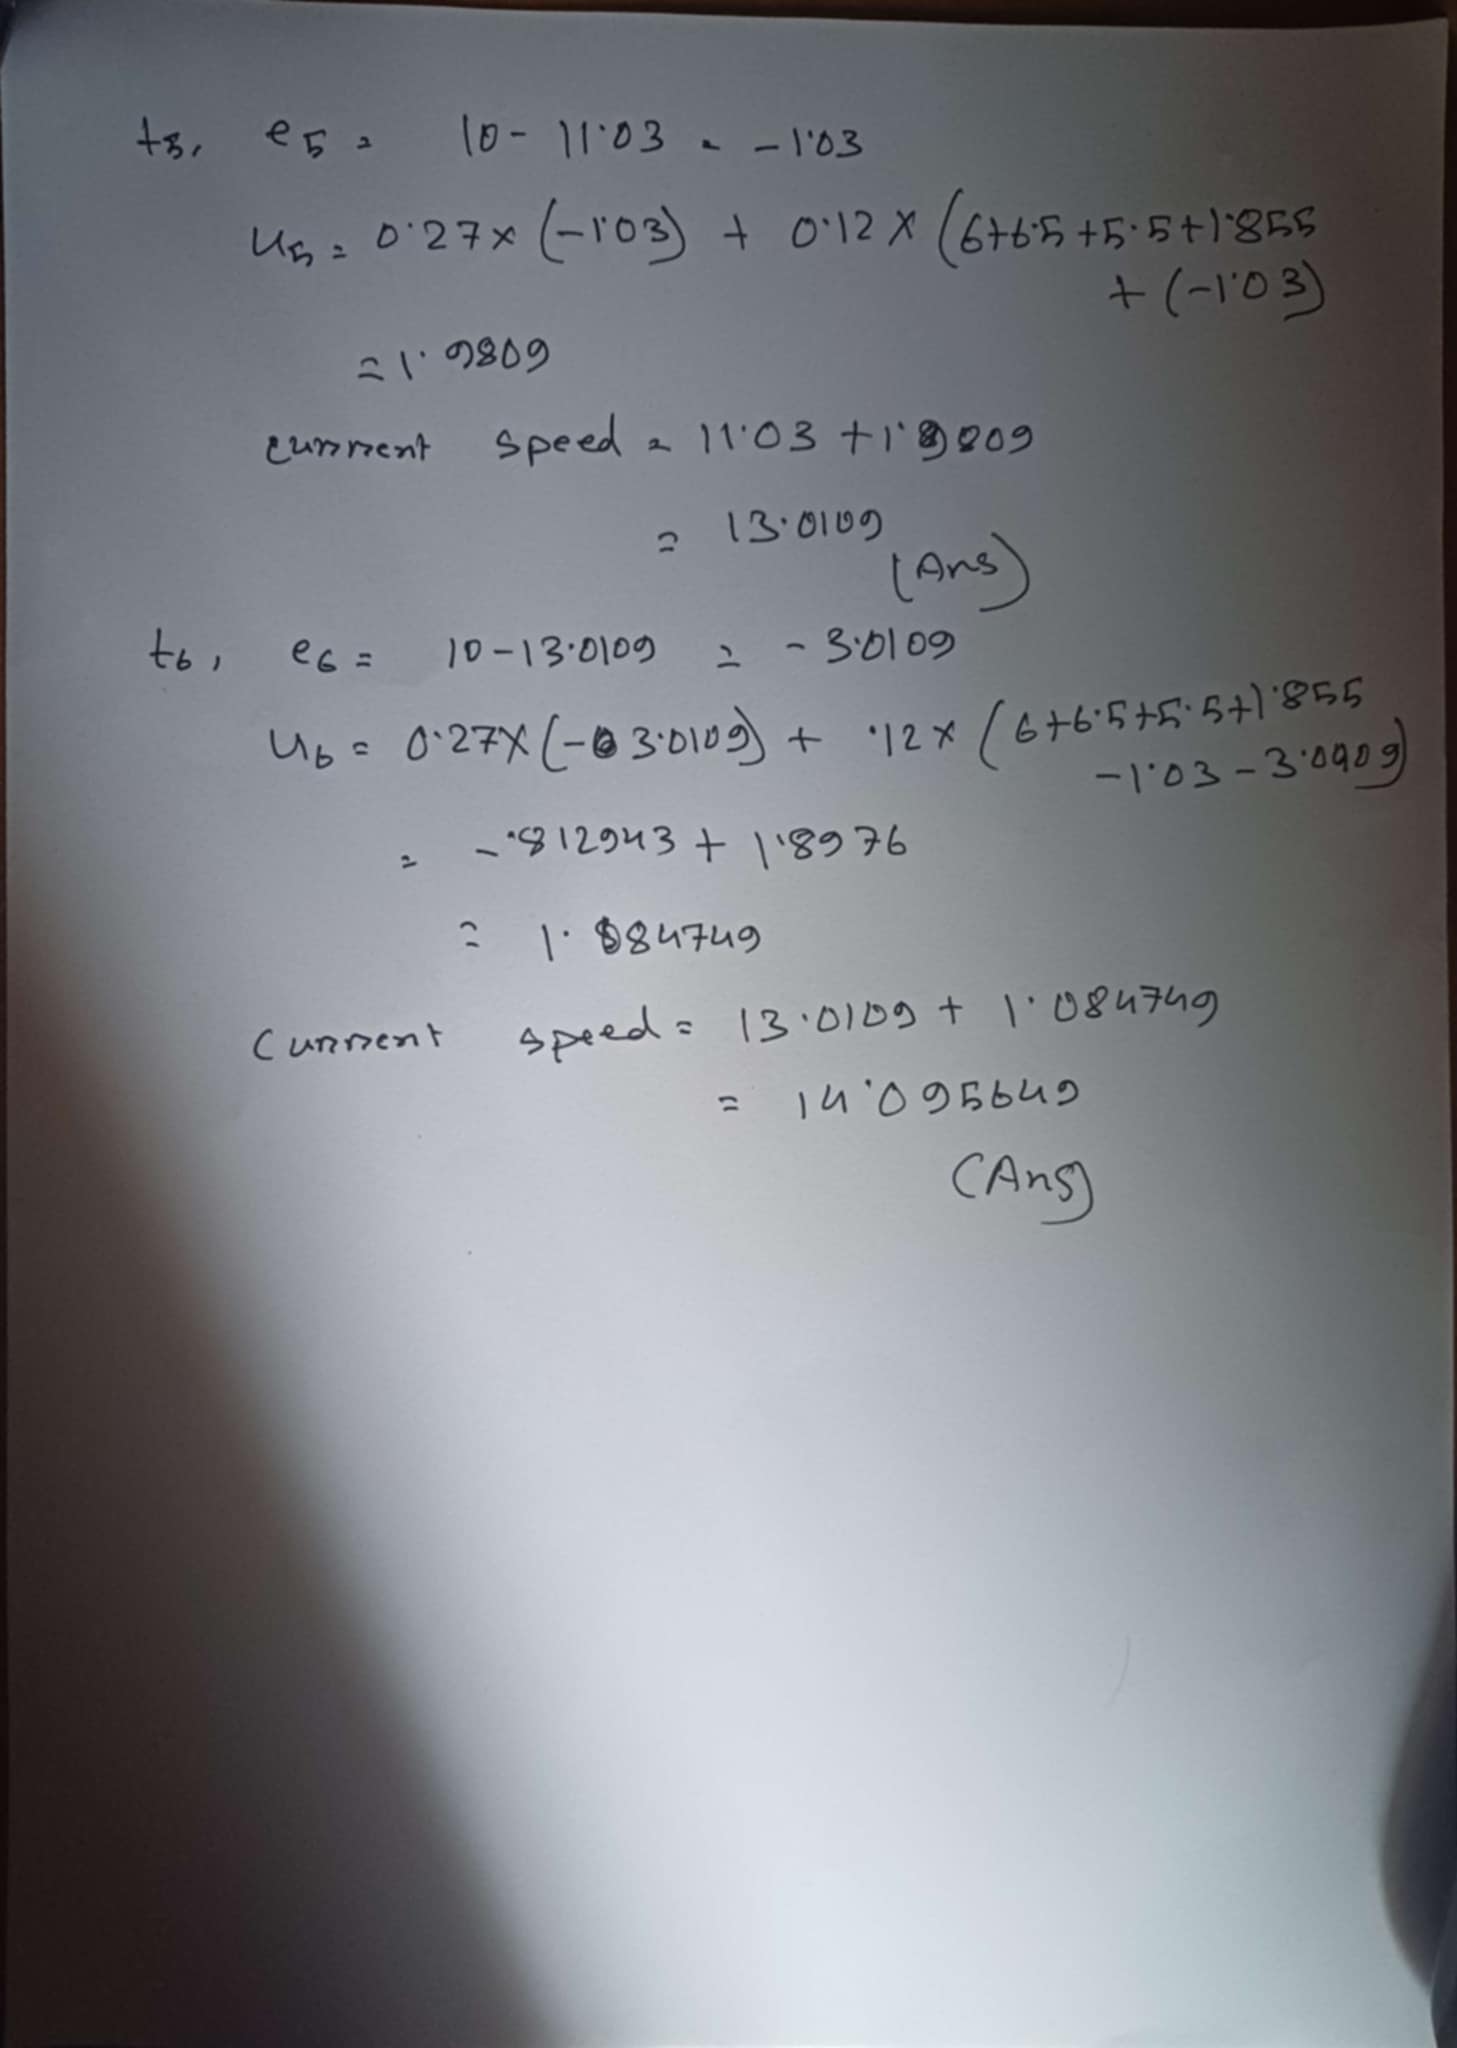 t5, e5 = 10 - 11.03 = -1.03
u5 = 0.27 × (-1.03) + 0.12 × (6+6.5+5.5+1.855
+ (-1.03)
= 1.9809
current speed = 11.03 + 1.9809
= 13.0109
(Ans)
t6, e6 = 10-13.0109 = -3.0109
u6 = 0.27×(-3.0109) + .12 × (6+6.5+5.5+1.855
-1.03-3.0909)
= -.812943 + 1.8976
= 1.084749
current speed = 13.0109 + 1.084749
= 14.095649
(Ans)